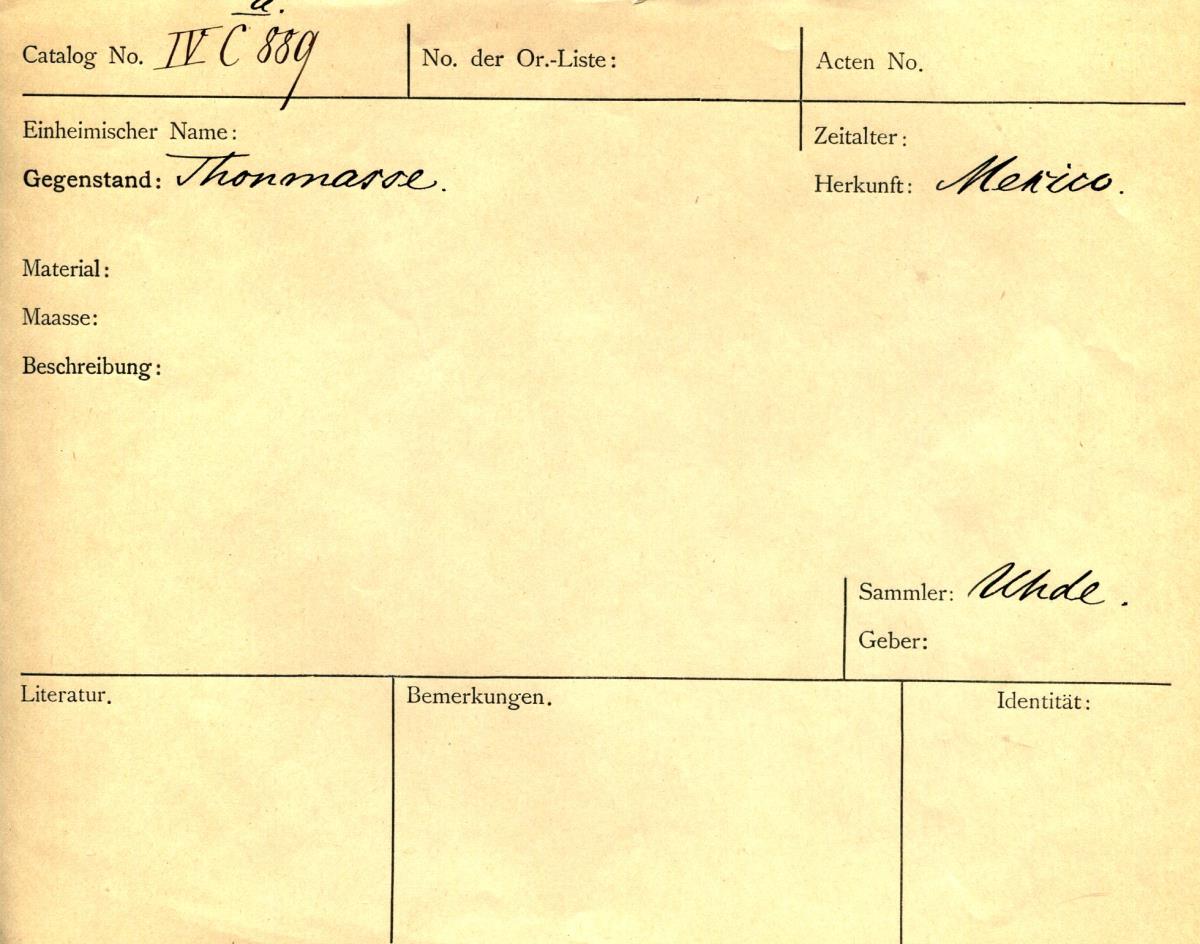 a.
Catalog No. IV C 889
No. der Or.-Liste:
Acten No.
Einheimischer Name:
Zeitalter:
Gegenstand: Thonmasse.
Herkunft: Mexico.
Material:
Maasse:
Beschreibung:
Sammler: Uhde.
Geber:
Literatur.
Bemerkungen.
Identität: